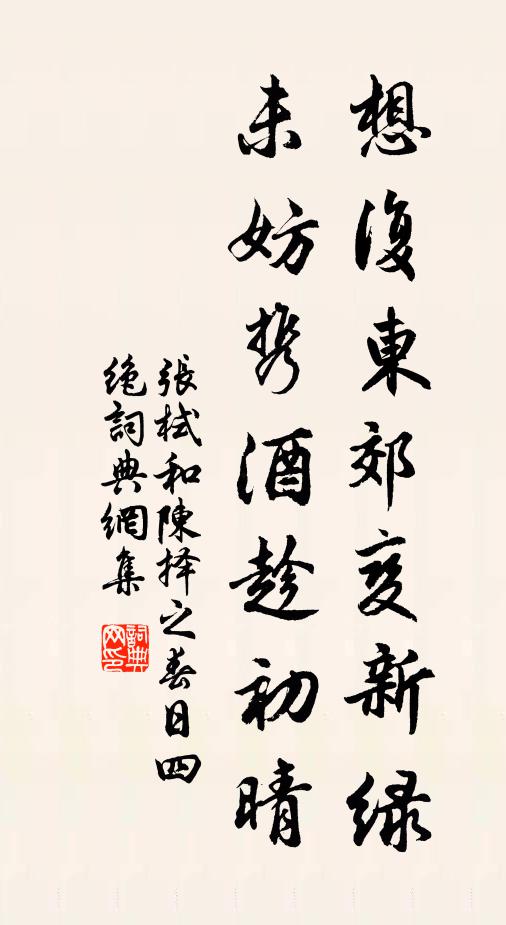 想復東郊变新绿
未妨携酒趁初晴
張栻和陳择之春日四
绝詞典網集
詞典网印